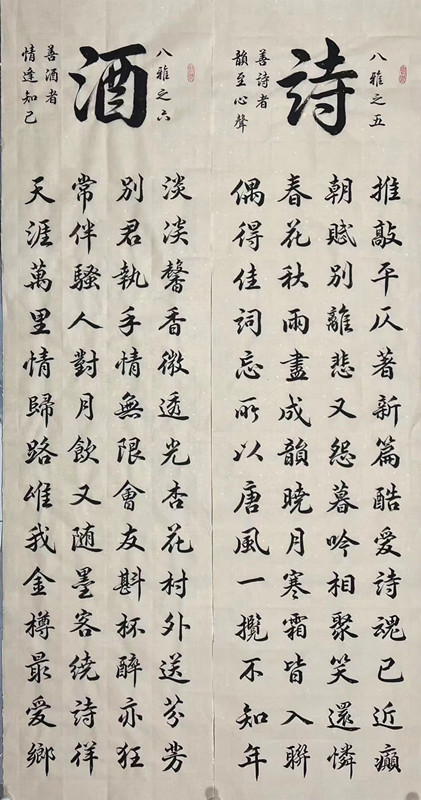 八雅之五
詩
善詩者
韻至心聲
推敲平仄著新篇酷愛詩魂已近癲
朝賦別離悲又怨暮吟相聚笑還憐
春花秋雨盡成韻曉月寒霜皆入聯
偶得佳詞忘所以唐風一攬不知年
八雅之六
酒
善酒者
情逢知己
淡淡馨香微透光杏花村外送芬芳
別君執手情無限會友斟杯醉亦狂
常伴騷人對月飲又随墨客繞詩徉
天涯萬里情歸路唯我金樽最愛鄉